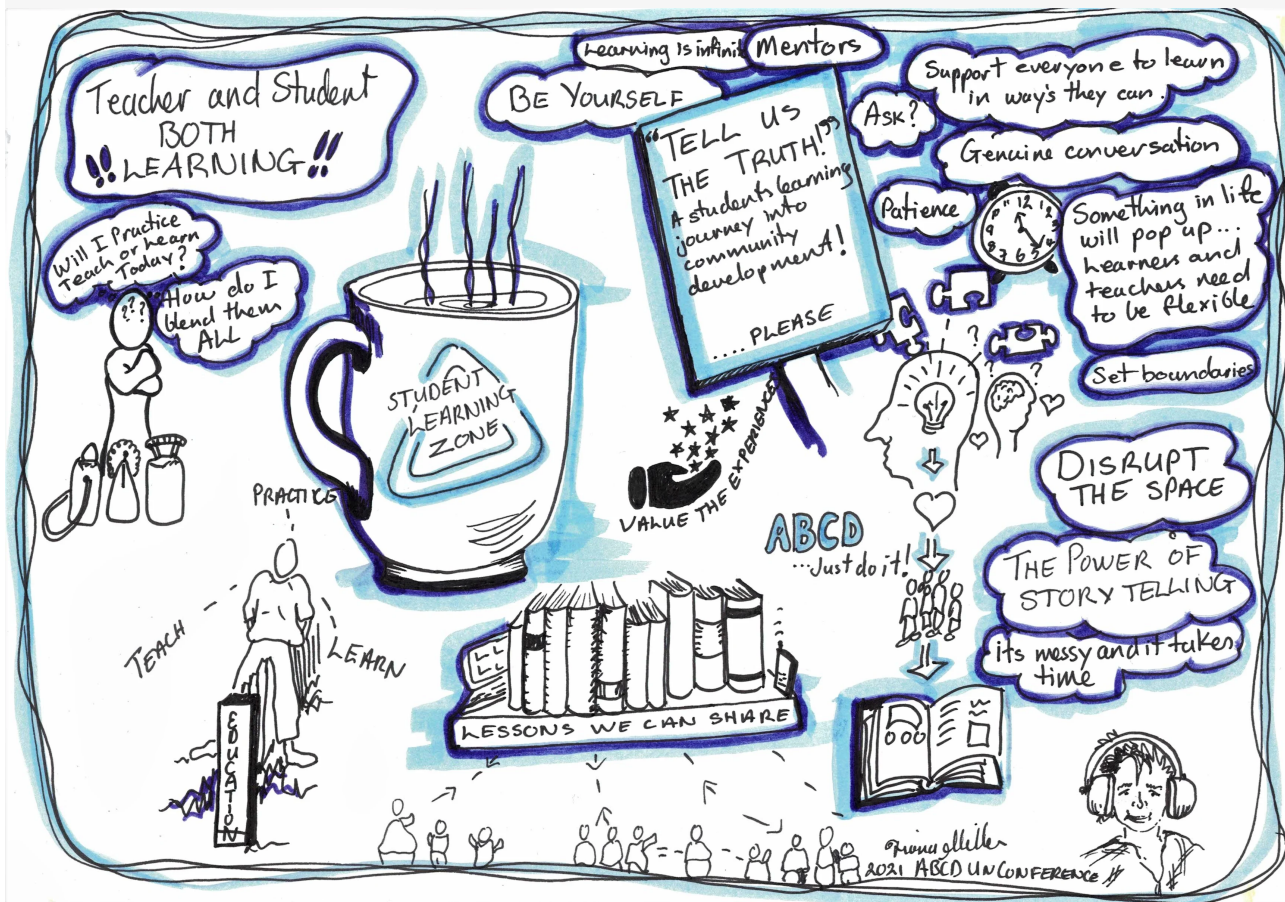 Teacher and Student
BOTH
!! LEARNING !!
Will I Practice
Teach or Learn
Today?
How do I
blend them
ALL
??
?
STUDENT
LEARNING
ZONE
PRACTICE
TEACH
LEARN
EDUCATION
Learning is infinit
Mentors
BE YOURSELF
"TELL US
THE TRUTH!"
A students learning
journey into
community
development!
.... PLEASE
VALUE THE EXPERIENCE
Ask?
Support everyone to learn
in way's they can.
Genuine conversation
Patience
Something in life
will pop up...
Learners and
teachers need
to be flexible
Set boundaries
DISRUPT
THE SPACE
THE POWER OF
STORY TELLING
its messy and it takes
time
ABCD
...Just do it!
LESSONS WE CAN SHARE
2021 ABCD UNCONFERENCE